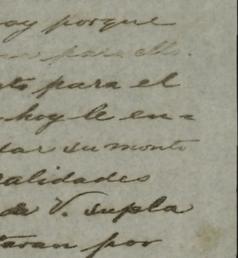 ay porque
para ello.
to para el
hoy le en=
dar su monto
ralidades
da V. supla
taran por